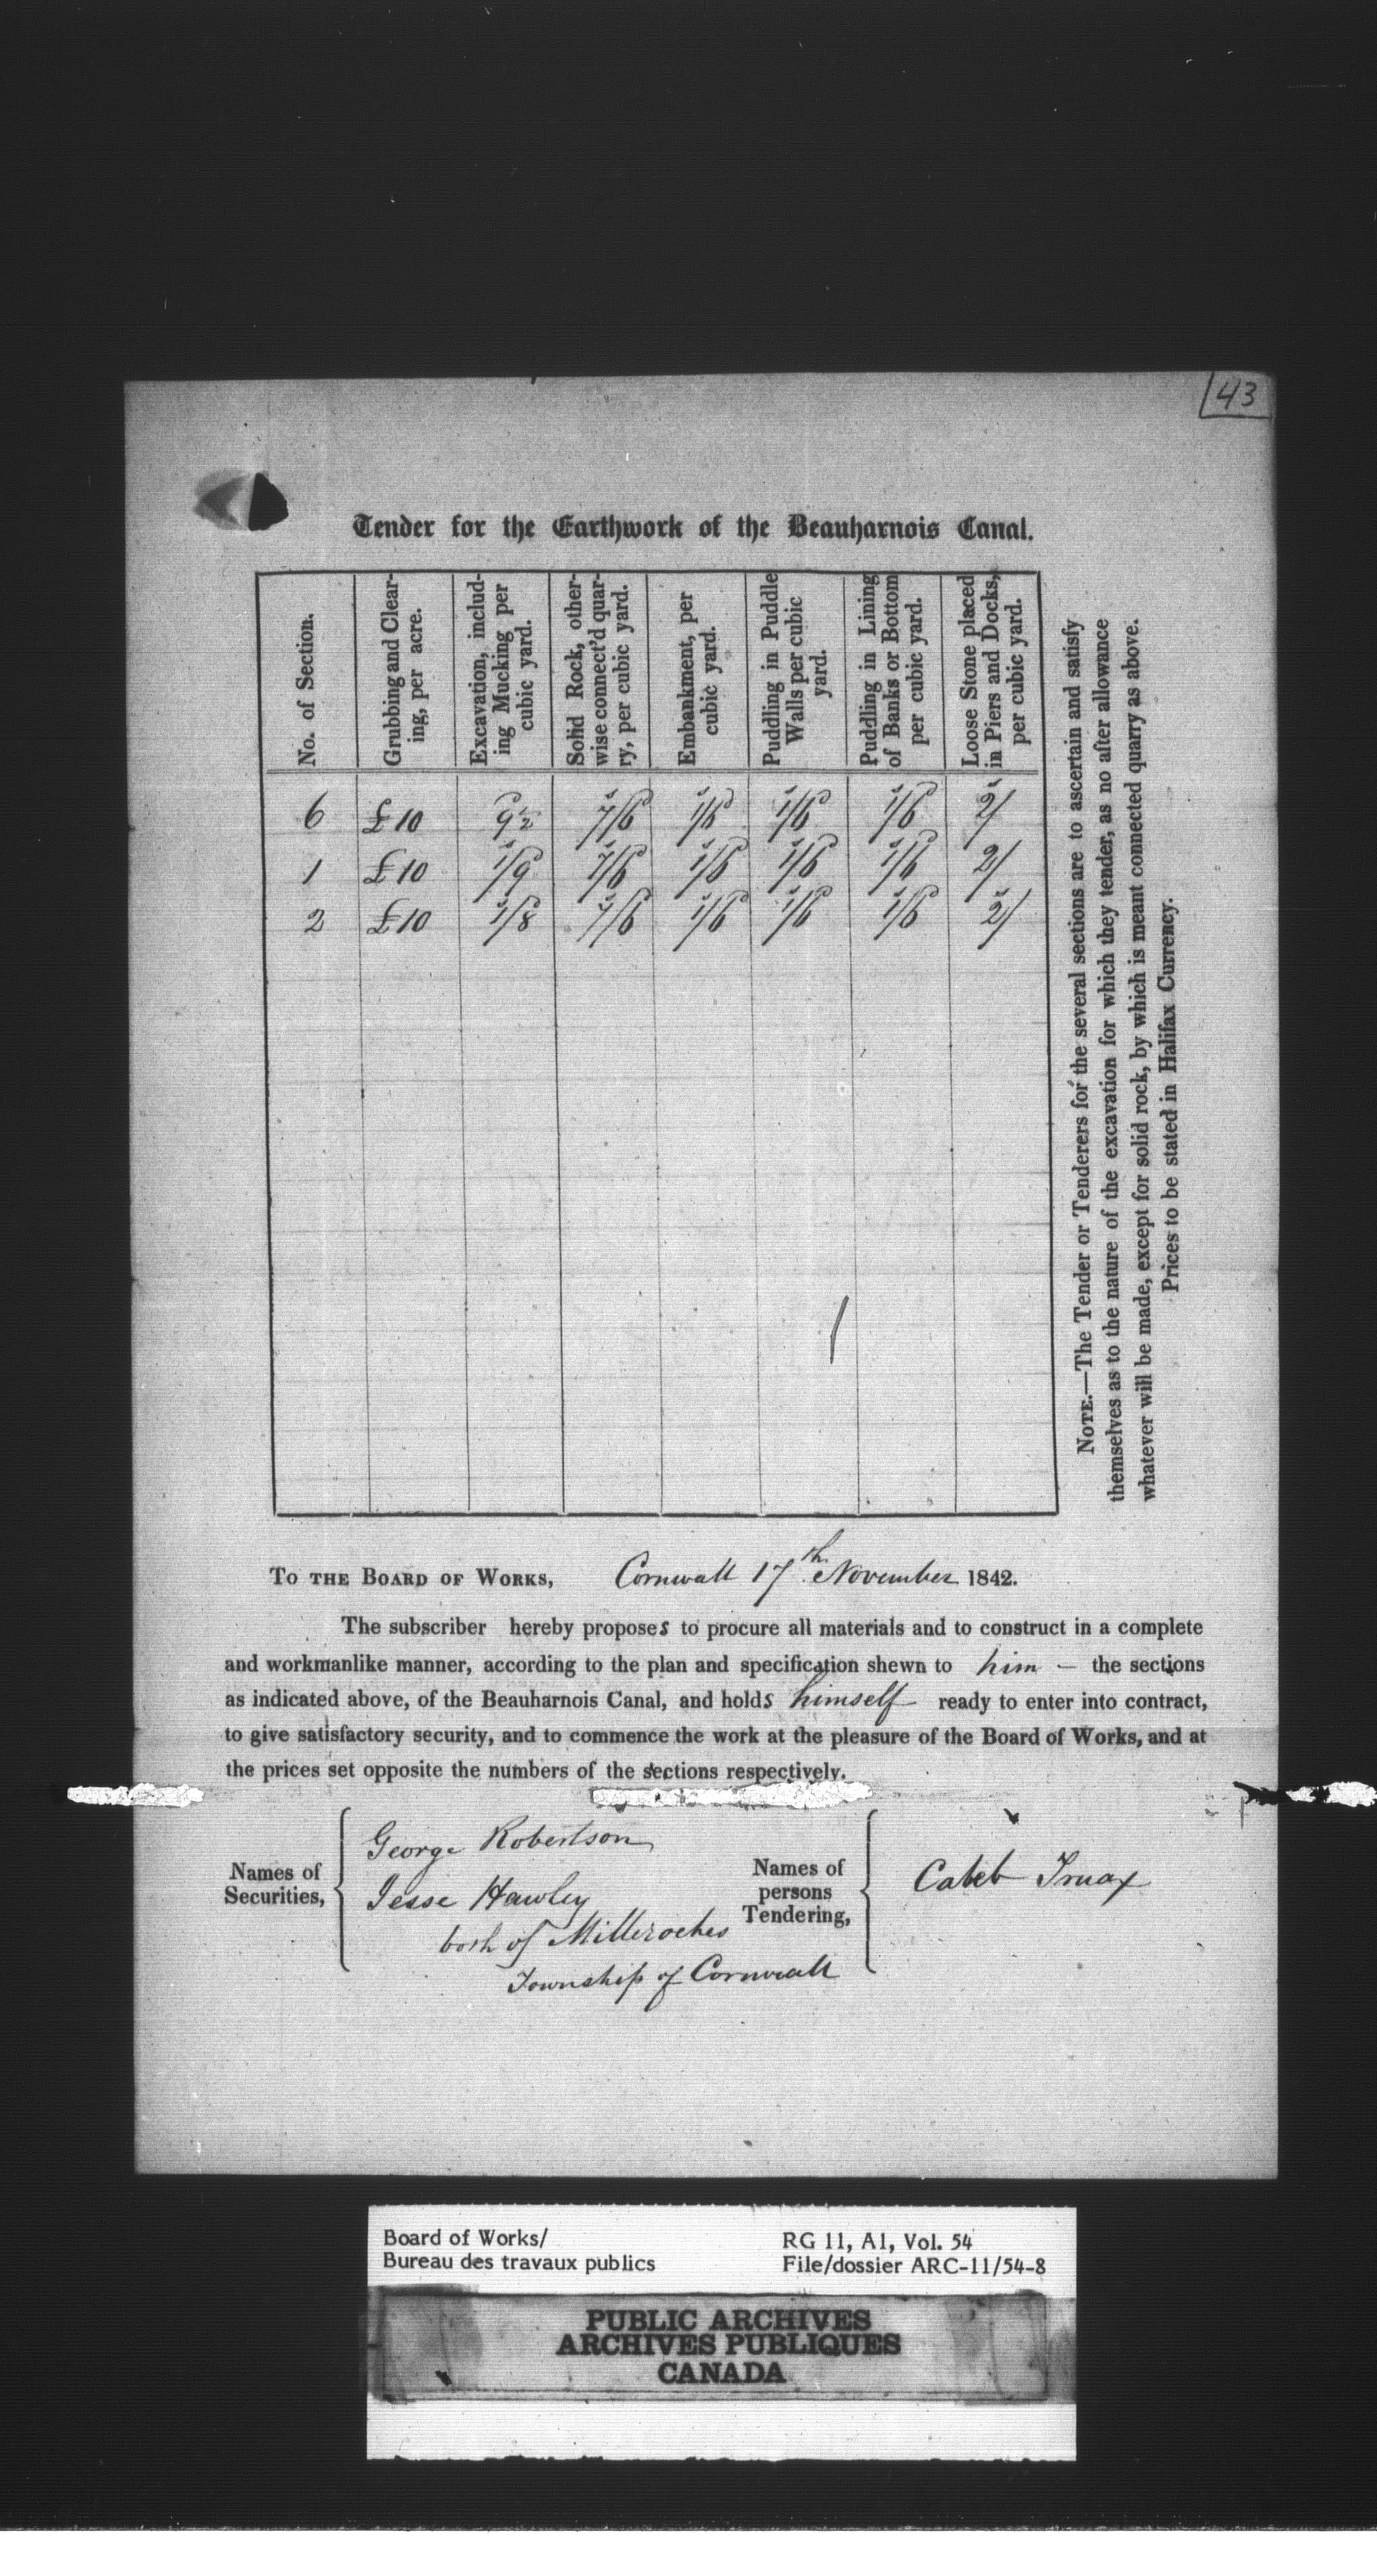 43
Tender for the Earthwork of the Beauharnois Canal.
No. of Section.
Grubbing and Clear-
ing, per acre.
Excavation, includ-
ing Mucking per
cubic yard.
Solid Rock, other-
wise connect'd quar-
ry, per cubic yard.
Embankment, per
cubic yard.
Puddling in Puddle
Walls per cubic
yard.
Puddling in Lining
of Banks or Bottom
per cubic yard.
Loose Stone placed
in Piers and Docks,
per cubic yard.
6 £10 9½ 7/6 1/6 1/6 1/6 2/
1 £10 1/9 7/6 1/6 1/6 1/6 2/
2 £10 1/8 7/6 1/6 1/6 1/6 2/
NOTE.—The Tender or Tenderers for the several sections are to ascertain and satisfy
themselves as to the nature of the excavation for which they tender, as no after allowance
whatever will be made, except for solid rock, by which is meant connected quarry as above.
Prices to be stated in Halifax Currency.
TO THE BOARD OF WORKS, Cornwall 17th November 1842.
The subscriber hereby proposes to procure all materials and to construct in a complete
and workmanlike manner, according to the plan and specification shewn to him – the sections
as indicated above, of the Beauharnois Canal, and holds himself ready to enter into contract,
to give satisfactory security, and to commence the work at the pleasure of the Board of Works, and at
the prices set opposite the numbers of the sections respectively.
Names of
Securities,
George Robertson
Jesse Hawley
both of Milleroches
Township of Cornwall
Names of
persons
Tendering,
Caleb Truax
Board of Works/
Bureau des travaux publics
RG 11, A1, Vol. 54
File/dossier ARC-11/54-8
PUBLIC ARCHIVES
ARCHIVES PUBLIQUES
CANADA